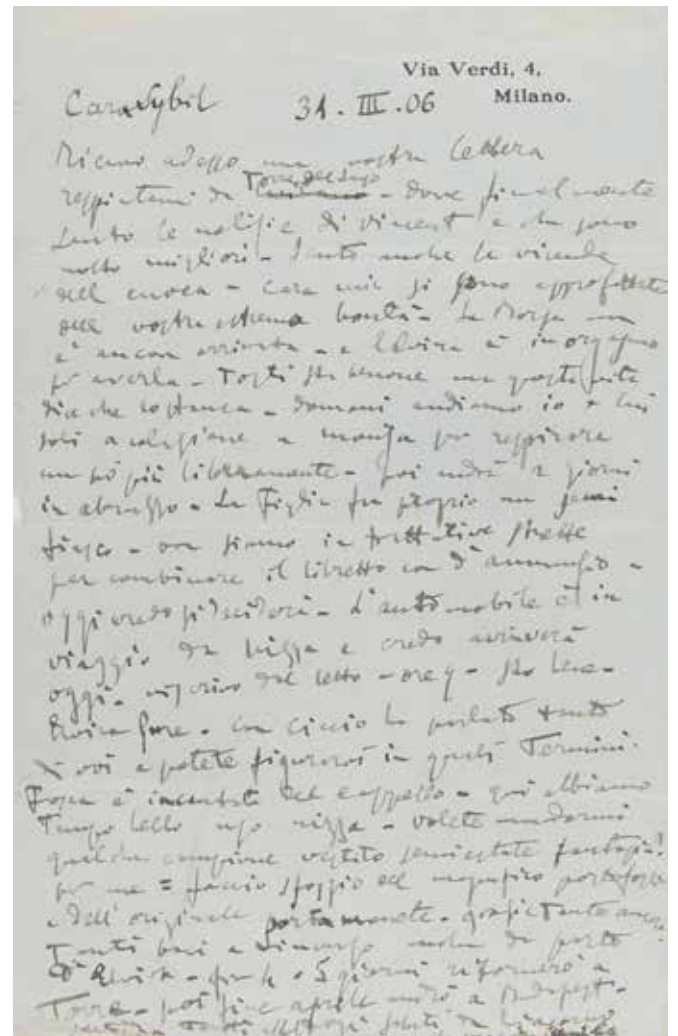 Via Verdi, 4.
Milano.
Cara Sybil 31. III. 06
Ricevo adesso una vostra lettera
respintami da Torre del Lago - dove finalmente
sento le notizie di Vincent e che sono
molto migliori - Sento anche le vicende
della cuoca - cara mia si sono approfittati
della vostra estrema bontà - La Borsa non
è ancora arrivata - e Elvira è in orgasmo
per averla - Tosti sta benone ma questa vita
dice che lo stanca - domani andiamo io e lui
soli a colazione a Monza per respirare
un pò più liberamente - poi andrà 2 giorni
in abruzzo - La Figlia fu proprio un semi
fiasco - ora siamo in trattative strette
per combinare il libretto con d'annunzio -
oggi credo si deciderà - L'automobile è in
viaggio da Nizza e credo arriverà
oggi - vi scrivo dal letto - ore 9 - sto bene -
Elvira pure - con Ciccio ho parlato tanto
di voi e potete figurarvi in quali Termini.
Fosca è incantata del cappello - qui abbiamo
Tempo bello uso nizza - volete mandarmi
qualche campione vestito semiestate fantasia?
per me = faccio sfoggio del magnifico portafogli
e dell'originale portamonete - grazie Tante ancora.
Tanti baci a Vincenzo anche da parte
d'Elvira - fra 4 o 5 giorni ritornerò a
Torre - poi fine aprile andrò a Budapest -